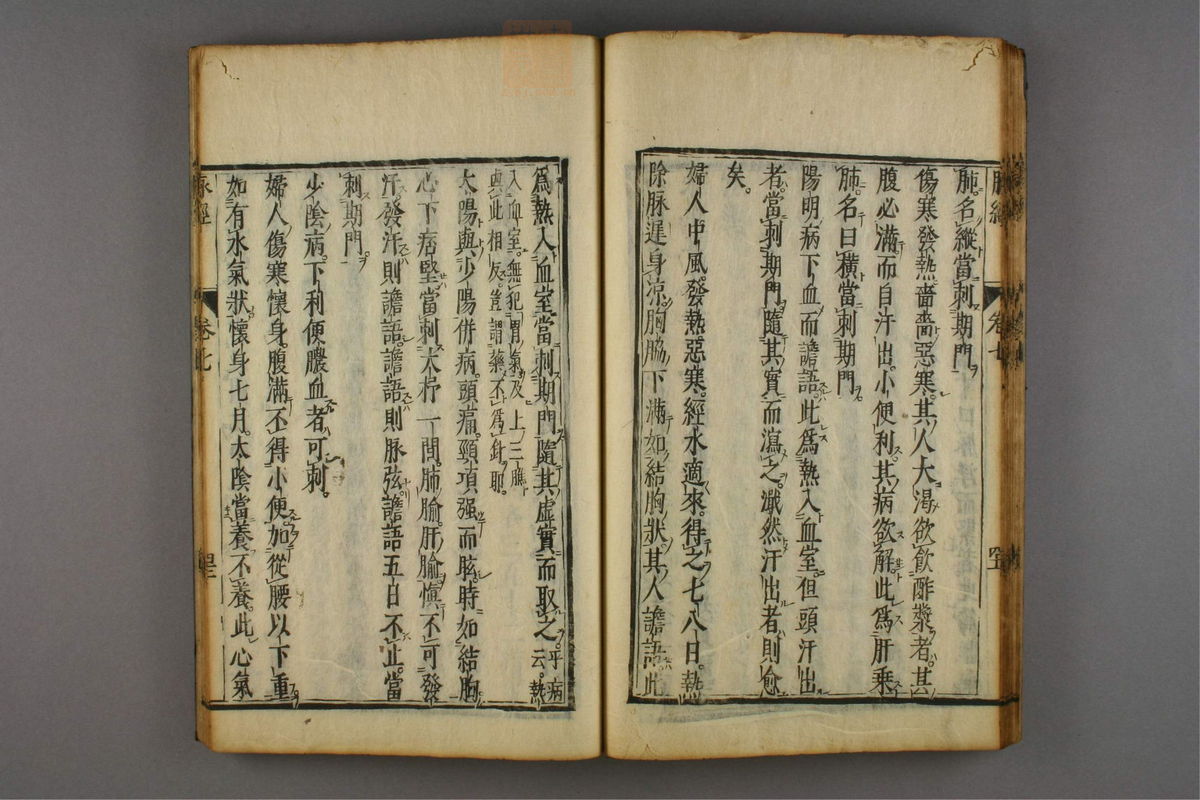 脉經
卷七
肺名縱當刺期門
傷寒發熱嗇嗇惡寒其人大渴欲飲酢漿者其
腹必滿而自汗出小便利其病欲解此爲肝乗
肺名曰横當刺期門
陽明病下血而譫語此爲熱入血室但頭汗出
者當刺期門隨其實而瀉之濈然汗出者則愈
矣
婦人中風發熱惡寒經水適來得之七八日熱
除脉遲身涼胸脇下滿如結胸狀其人譫語此
爲熱入血室當刺期門隨其虚實而取之平病云熱
入血室無犯胃氣及上三膲
與此相反豈謂藥不爲針耶
太陽與少陽併病頭痛頸項强而眩時如結胸
心下痞堅當刺大杼一間肺腧肝腧慎不可發
汗發汗則譫語譫語則脉弦譫語五日不止當
刺期門
少陰病下利便膿血者可刺
婦人傷寒懷身腹滿不得小便加從腰以下重
如有水氣狀懷身七月太陰當養不養此心氣
脉經
卷七